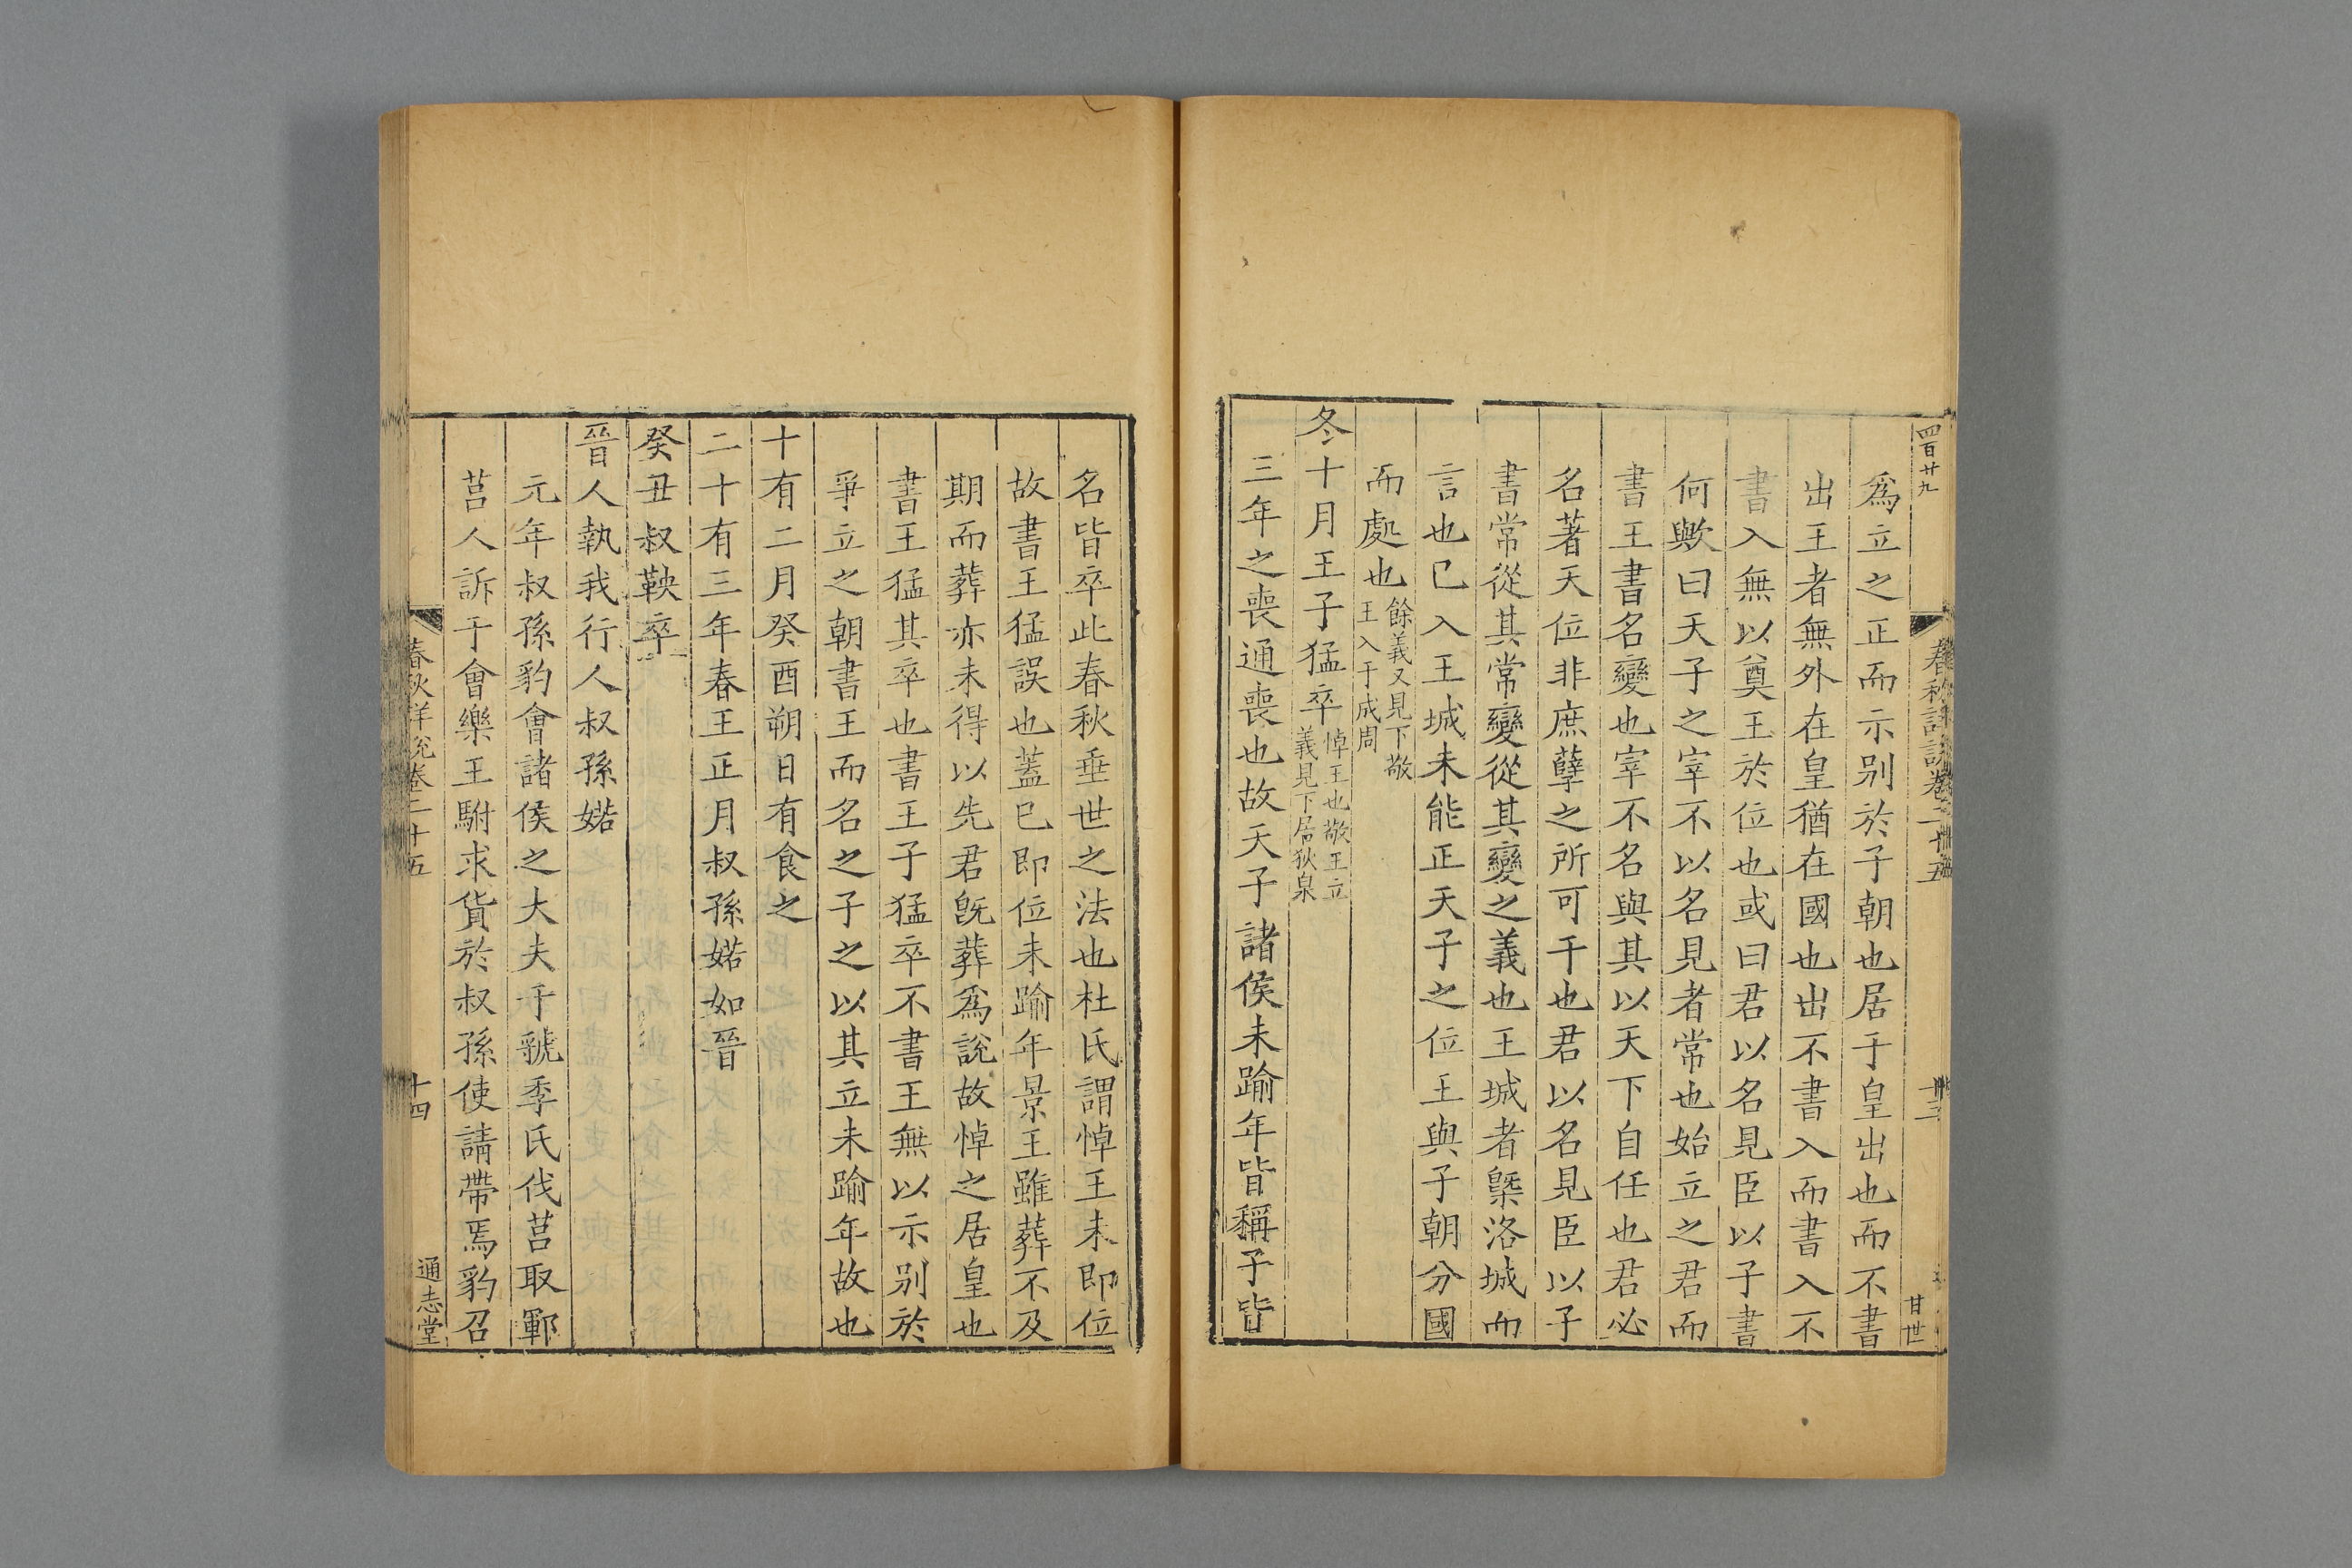 四百廿九
春秋詳說卷二十五
十三
甘世
爲立之正而示别於子朝也居于皇出也而不書
出王者無外在皇猶在國也出不書入而書入不
書入無以奠王於位也或曰君以名見臣以子書
何歟曰天子之宰不以名見者常也始立之君而
書王書名變也宰不名與其以天下自任也君必
名著天位非庶孽之所可干也君以名見臣以子
書常從其常變從其變之義也王城者槩洛城而
言也已入王城未能正天子之位王與子朝分國
而處也餘義又見下敬
王入于成周
冬十月王子猛卒悼王也敬王立
義見下居狄泉
三年之喪通喪也故天子諸侯未踰年皆稱子皆
名皆卒此春秋垂世之法也杜氏謂悼王未即位
故書王猛誤也蓋已即位未踰年景王雖葬不及
期而葬亦未得以先君旣葬爲說故悼之居皇也
書王猛其卒也書王子猛卒不書王無以示别於
爭立之朝書王而名之子之以其立未踰年故也
十有二月癸酉朔日有食之
二十有三年春王正月叔孫婼如晉
癸丑叔鞅卒
晉人執我行人叔孫婼
元年叔孫豹會諸侯之大夫于虢季氏伐莒取鄆
莒人訴于會樂王駙求貨於叔孫使請帶焉豹召
春秋詳說卷二十五
十四
通志堂